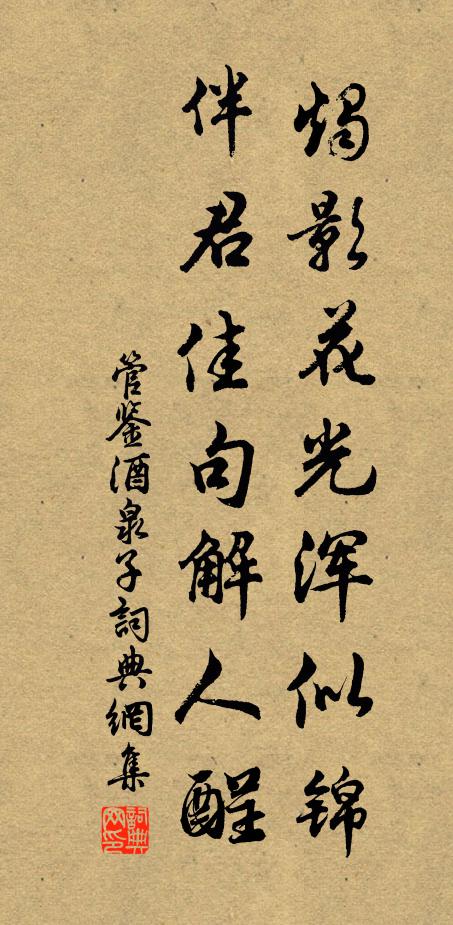 烛影花光浑似锦
伴君佳句解人酲
管鉴酒泉子詞典網集
詞典网印